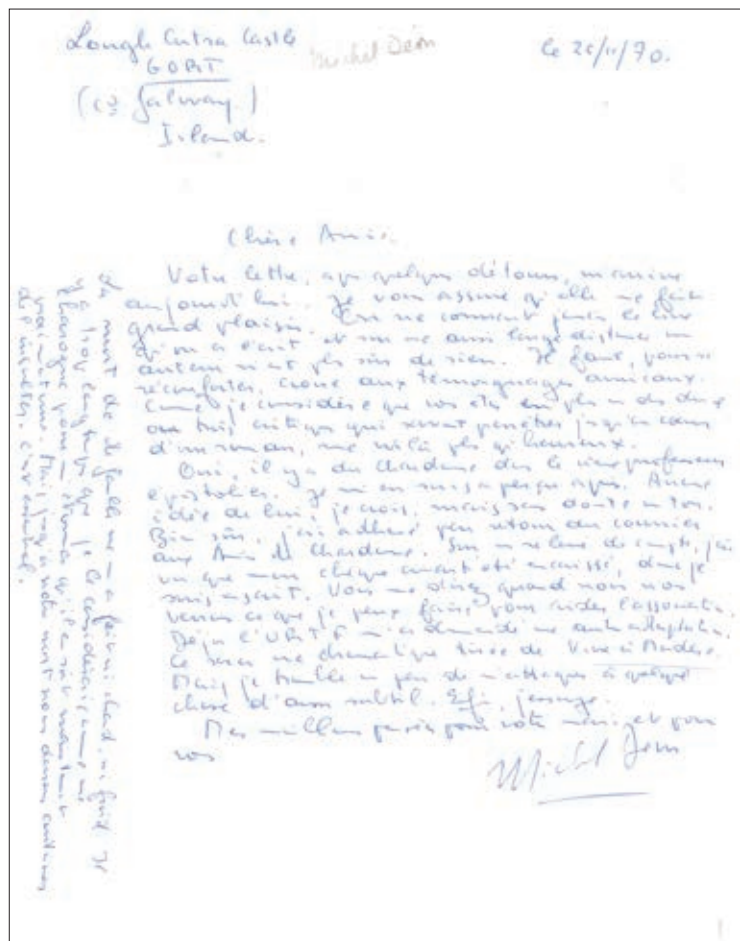 Lough Cutra Castle
GORT
(Co Galway.)
Irland.
Michel Déon
le 20/11/70.
Chère Amie.
Votre lettre, après quelques détours, m'arrive
aujourd'hui. Je vous assure qu'elle me fait
grand plaisir. On ne connait jamais le livre
qu'on a écrit et sur une aussi longue distance un
auteur n'est plus sûr de rien. Il faut, pour se
réconforter, croire aux témoignages amicaux.
Comme je considère que vous êtes en plus un des deux
ou trois critiques qui savent pénétrer jusqu'au cœur
d'un roman, me voilà plus qu'heureux.
Oui, il y a du Chardonne dans le vieux professeur
épistolier. Je m'en suis aperçu après. Aucune
idée de lui, je crois, mais sans doute un ton.
Bien sûr, j'ai adhéré par retour du courrier
aux Amis de Chardonne. Sur un relevé de compte, j'ai
vu que mon chèque avait été encaissé, donc je
suis inscrit. Vous me direz quand nous nous
verrons ce que je peux faire pour aider l'association.
Déjà l'ORTF m'a demandé une autre adaptation.
Ce sera une dramatique tirée de Vivre à Madère.
Mais je tremble un peu de m'attaquer à quelque
chose d'aussi subtil. Enfin, j'essaye.
Mes meilleures pensées pour votre mari et pour
vous
Michel Déon
La mort de de Gaulle ne m'a fait ni chaud, ni froid. Il
y a trop longtemps que je le considérais comme une
charogne pour m'étonner qu'il en soit maintenant
vraiment une. Mais jusqu'à notre mort nous devrons
des insultes, c'est essentiel.